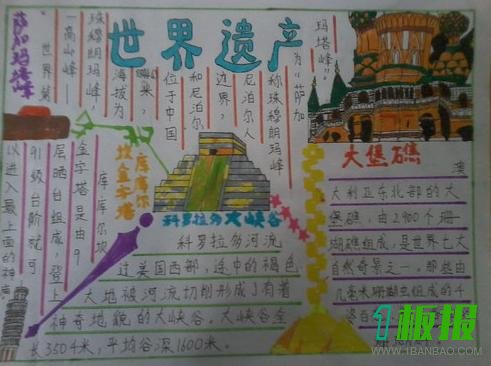 世界遗产
萨加玛塔峰
世界第
一高山峰——
珠穆朗玛峰，
海拔为
米，
位于中国
和尼泊尔
边界，
尼泊尔人
称珠穆朗玛峰
为“萨加
玛塔峰”。
库库尔
坎金字塔
库库尔坎
金字塔是由9
层晒台组成，登上
91级台阶就可
以进入最上面的神庙
科罗拉多大峡谷
科罗拉多河流
过美国西部，途中的褐色
大地被河流切削形成了有着
神奇地貌的大峡谷。大峡谷全
长3504米，平均谷深1600米。
大堡礁
澳
大利亚东北部的大
堡礁，由2900个珊
瑚礁组成，是世界七大
自然奇景之一。那些由
几毫米珊瑚虫组成的4
洛百
1板报
WWW.1BANBAO.COM